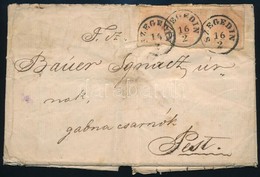 SZEGEDIN
16
2
SZEGEDIN
16
2
SZEGEDIN
16
2
T. cz.
Bauer Ignacz úr
nak,
gabna csarnok
Pest.